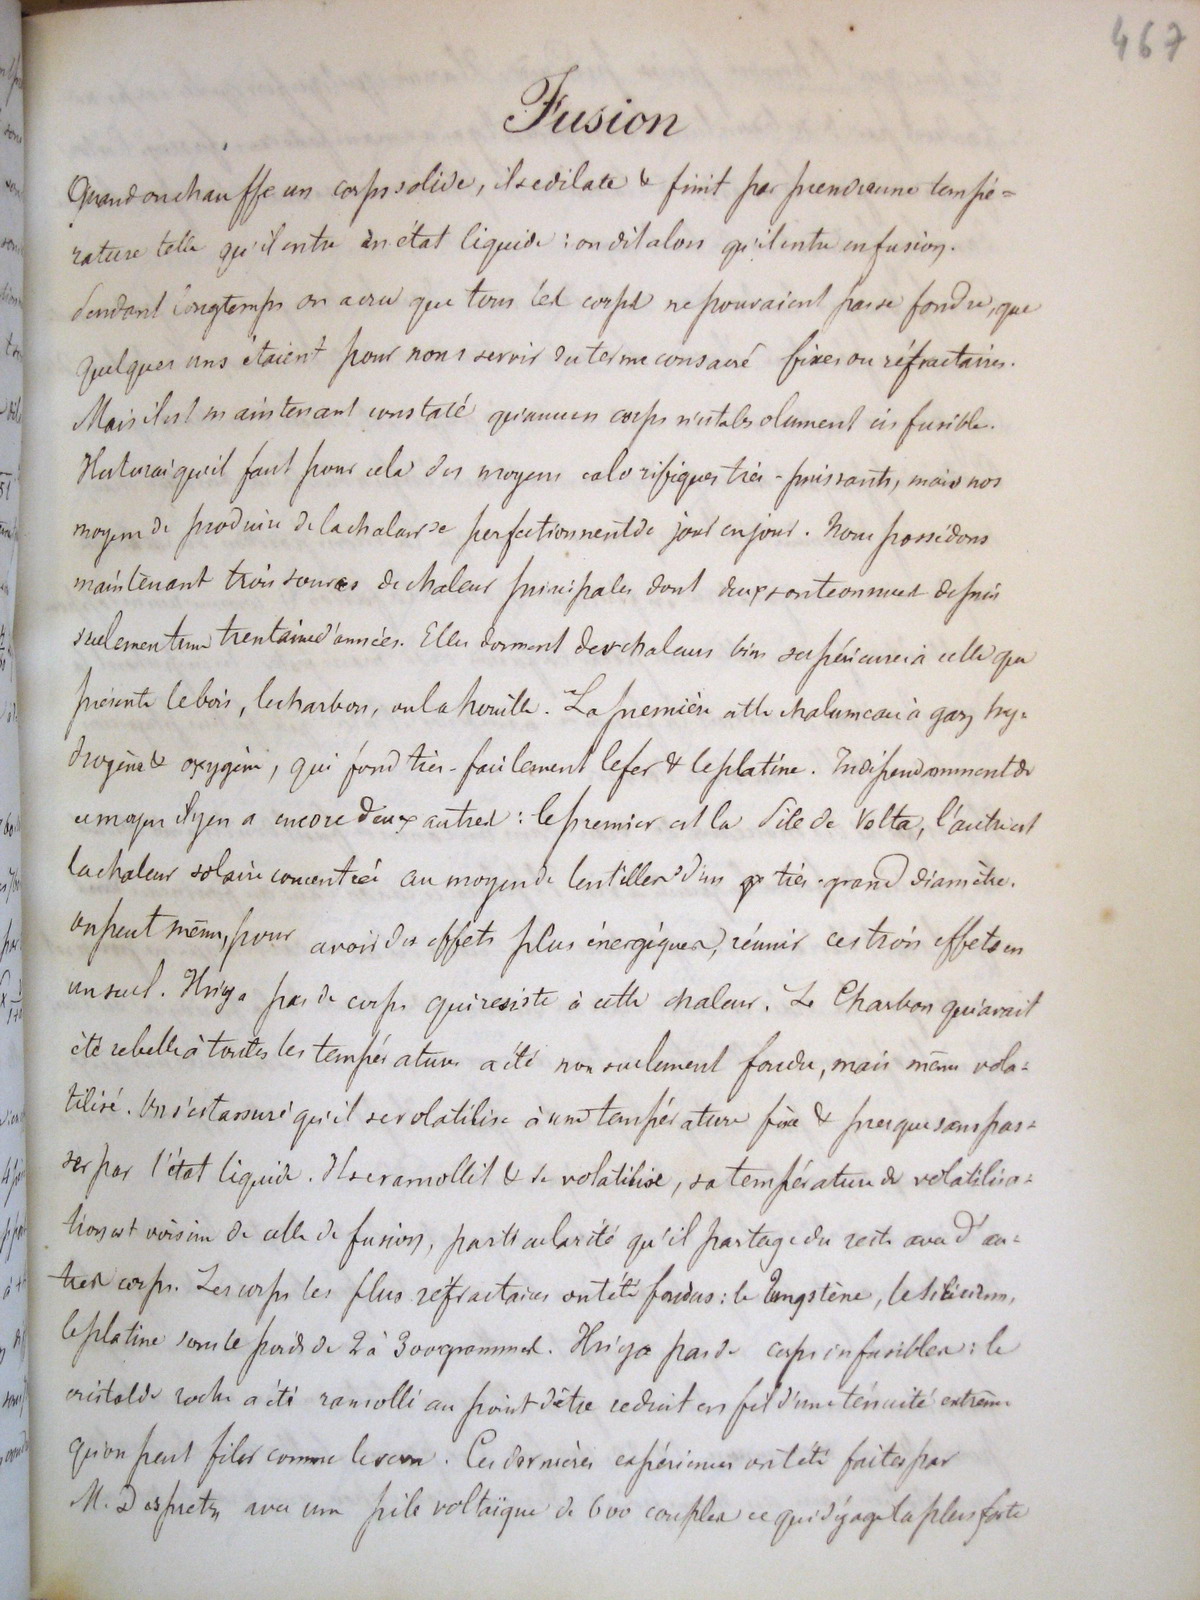 467
Fusion
Quand on chauffe un corps solide, il se dilate & finit par prendre une tempé=
rature telle qu'il entre en état liquide : on dit alors qu'il entre en fusion.
Pendant longtemps on a cru que tous les corps ne pouvaient pas se fondre, que
quelques uns étaient pour nous servir du terme consacré fixes ou réfractaires.
Mais il est maintenant constaté qu'aucun corps n'est absolument infusible.
Il est vrai qu'il faut pour cela des moyens calorifiques très-puissants, mais nos
moyens de produire de la chaleur se perfectionnent de jour en jour. Nous possédons
maintenant trois sources de chaleur principales dont deux sont connues depuis
seulement une trentaine d'années. Elles donnent des chaleurs bien supérieures à celle que
présente le bois, le charbon, ou la houille. La première est le chalumeau à gaz hy-
drogène & oxygène, qui fond très-facilement le fer & le platine. Indépendamment de
ce moyen il y en a encore deux autres : le premier est la Pile de Volta, l'autre est
la chaleur solaire concentrée au moyen de lentilles d'un très-grand diamètre.
On peut même, pour avoir des effets plus énergiques, réunir ces trois effets en
un seul. Il n'y a pas de corps qui résiste à cette chaleur. Le Charbon qui avait
été rebelle à toutes les températures a été non seulement fondu, mais même vola=
tilisé. On s'est assuré qu'il se volatilise à une température fixe & presque sans pas=
ser par l'état liquide. Il se ramollit & se volatilise, sa température de volatilisa=
tion est voisine de celle de fusion, particularité qu'il partage du reste avec d'au=
tres corps. Les corps les plus réfractaires ont été fondus : le Tungstène, le silicium,
le platine sous le poids de 2 à 300 grammes. Il n'y a pas de corps infusibles : le
cristal de roche a été ramolli au point d'être réduit en fil d'une ténuité extrême
qu'on peut filer comme le verre. Ces dernières expériences ont été faites par
M. Despretz avec une pile voltaïque de 600 couples ce qui dégage la plus forte